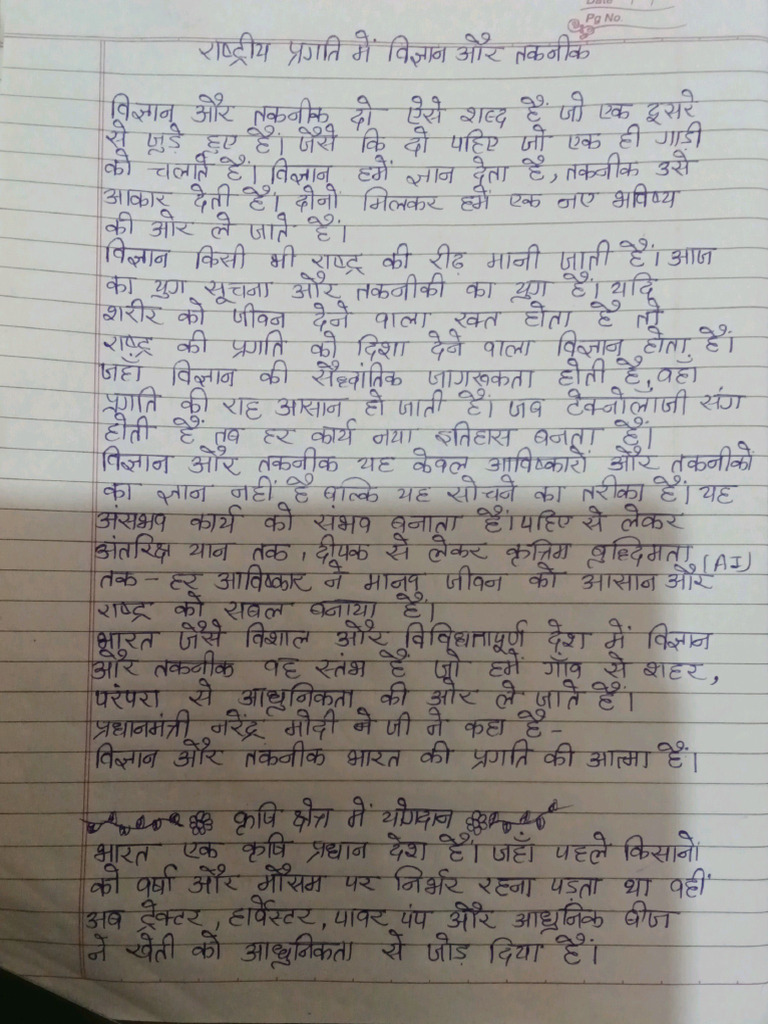 Date
Pg No.
राष्ट्रीय प्रगति में विज्ञान और तकनीक
विज्ञान और तकनीक दो ऐसे शब्द हैं जो एक दूसरे
से जुड़े हुए हैं। जैसे कि दो पहिए जो एक ही गाड़ी
को चलाते हैं। विज्ञान हमें ज्ञान देता है, तकनीक उसे
आकार देती हैं। दोनों मिलकर हमें एक नए भविष्य
की ओर ले जाते हैं।
विज्ञान किसी भी राष्ट्र की रीढ़ मानी जाती हैं। आज
का युग सूचना और तकनीकी का युग हैं। यदि
शरीर को जीवन देने वाला रक्त होता है तो
राष्ट्र की प्रगति को दिशा देने वाला विज्ञान होता हैं।
जहाँ विज्ञान की सैध्दांतिक जागरूकता होती है, वहाँ
प्रगति की राह आसान हो जाती हैं। जब टेक्नोलॉजी संग
होती हैं तब हर कार्य नया इतिहास बनता हैं।
विज्ञान और तकनीक यह केवल आविष्कारों और तकनीकों
का ज्ञान नहीं है बल्कि यह सोचने का तरीका हैं। यह
असंभव कार्य को संभव बनाता हैं। पहिए से लेकर
अंतरिक्ष यान तक, दीपक से लेकर कृत्रिम बुध्दिमता (AI)
तक - हर आविष्कार ने मानव जीवन को आसान और
राष्ट्र को सबल बनाया हैं।
भारत जैसे विशाल और विविधतापूर्ण देश में विज्ञान
और तकनीक वह स्तंभ हैं जो हमें गाँव से शहर,
परंपरा से आधुनिकता की ओर ले जाते हैं।
प्रधानमंत्री नरेंद्र मोदी ने जी ने कहा हैं -
विज्ञान और तकनीक भारत की प्रगति की आत्मा हैं।
कृषि क्षेत्र में योगदान
भारत एक कृषि प्रधान देश हैं। जहाँ पहले किसानो
को वर्षा और मौसम पर निर्भर रहना पड़ता था वहीं
अब ट्रेक्टर, हार्वेस्टर, पावर पंप और आधुनिक बीज
ने खेती को आधुनिकता से जोड़ दिया हैं।